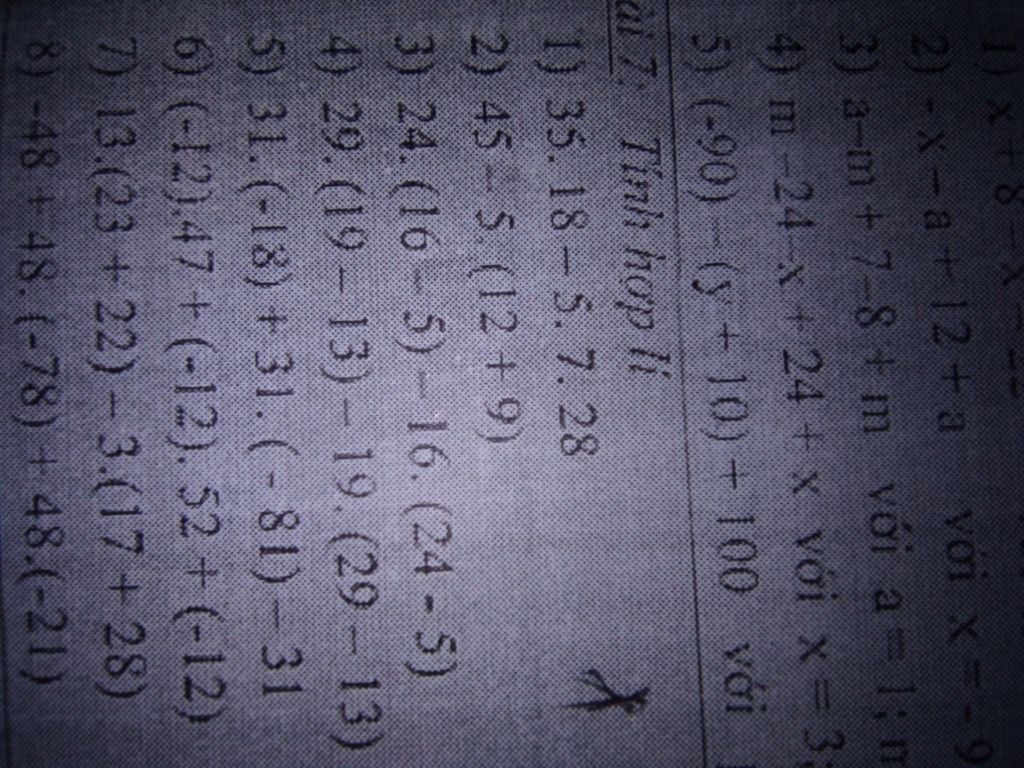 1) x + 8 – x – 22
2) - x – a + 12 + a với x = - 9
3) a–m + 7–8 + m với a = 1 ; m
4) m –24–x + 24 + x với x = 3
5) (-90) – (y + 10) + 100 với
ài 7: Tính hợp lí
1) 35. 18 – 5. 7. 28
2) 45 – 5. (12 + 9)
3) 24. (16 – 5) – 16. (24 - 5)
4) 29. (19 – 13) – 19. (29 – 13)
5) 31. (-18) + 31. ( - 81) – 31
6) (-12).47 + (-12). 52 + (-12)
7) 13.(23 + 22) – 3.(17 + 28)
8) -48 + 48. (-78) + 48.(-21)